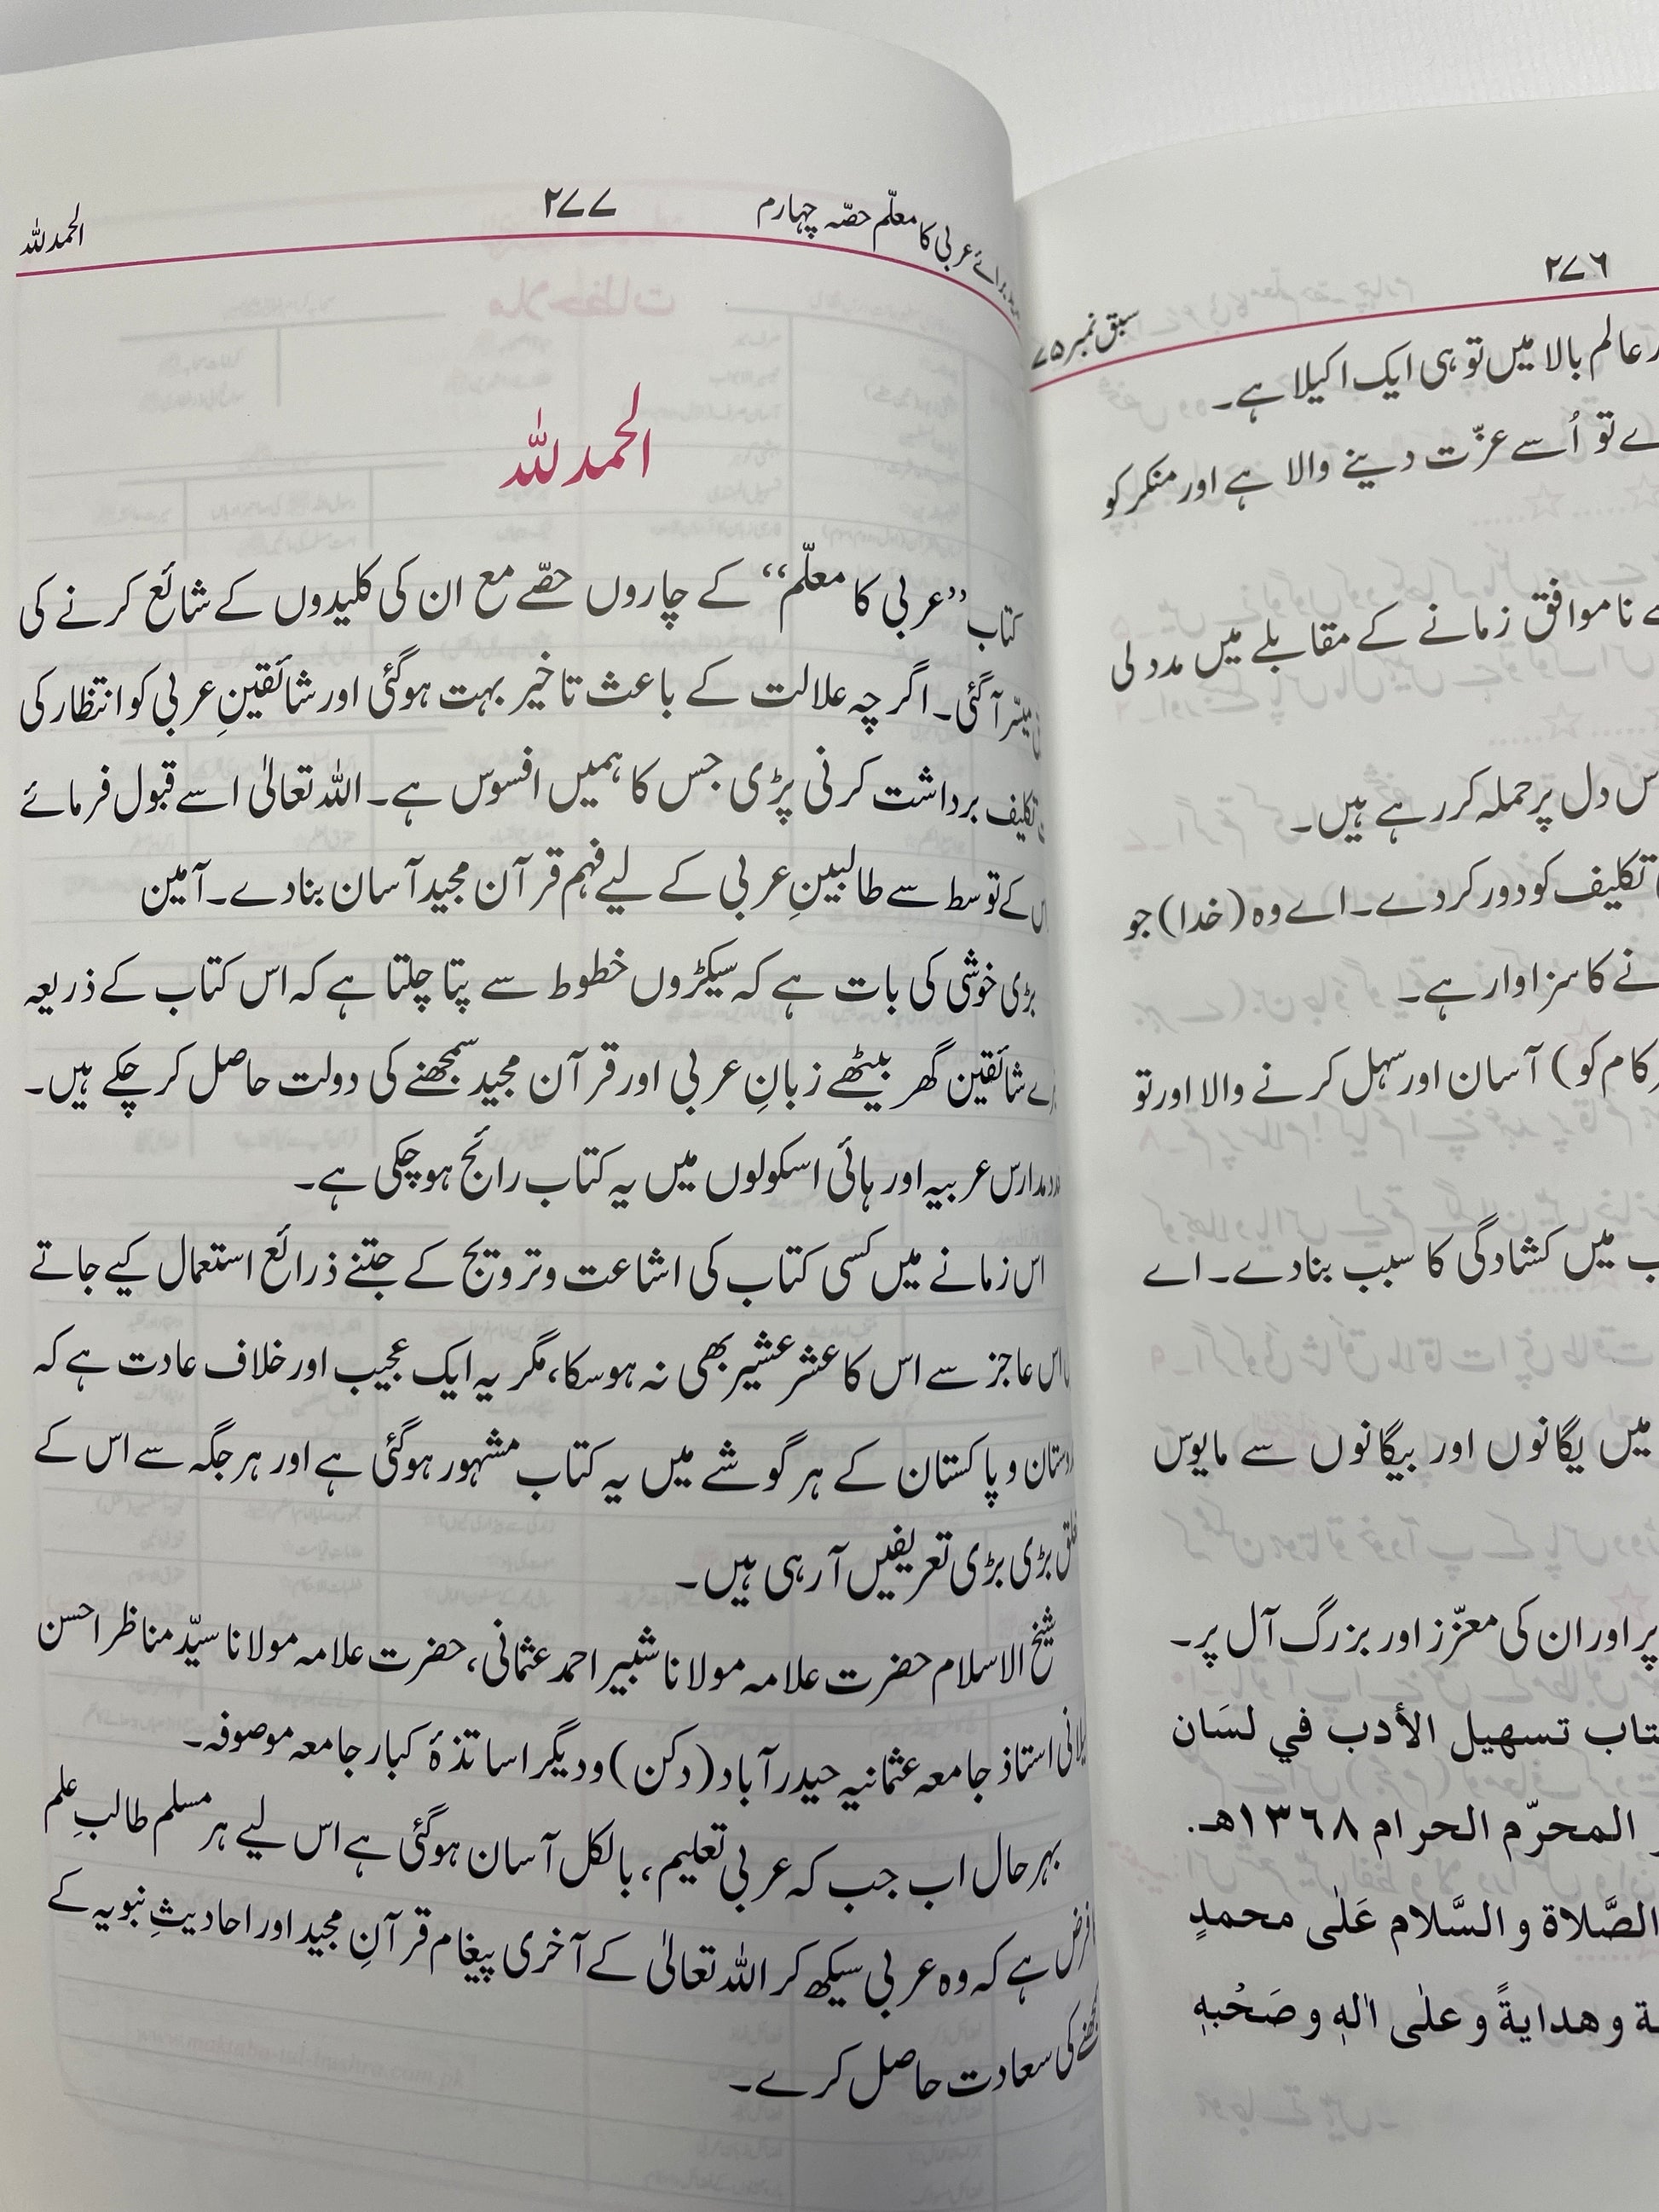 ۲۷۶
سبق نمبر ۷۵
عالم بالا میں تو ہی ایک اکیلا ہے۔
تو اُسے عزّت دینے والا ہے اور منکر کو
ناموافق زمانے کے مقابلے میں مدد لی
دل پر حملہ کر رہے ہیں۔
تکلیف کو دور کردے۔ اے وہ (خدا) جو
نے کا سزا وار ہے۔
کام کو) آسان اور سہل کرنے والا اور تو
میں کشادگی کا سبب بنادے۔ اے
میں یگانوں اور بیگانوں سے مایوس
پر اور ان کی معزّز اور بزرگ آل پر۔
تسهيل الأدب في لسَان
المحرّم الحرام ١٣٦٨هـ.
الصَّلاة و السَّلام عَلٰى محمدٍ
و هدايةً و علٰى اٰلهٖ و صَحْبهٖ
عربی کا معلّم حصّہ چہارم
۲۷۷
الحمد للہ
الحمد للہ
کتاب ”عربی کا معلّم“ کے چاروں حصّے مع ان کی کلیدوں کے شائع کرنے کی
میسّر آگئی۔ اگر چہ علالت کے باعث تاخیر بہت ہوگئی اور شائقینِ عربی کو انتظار کی
تکلیف برداشت کرنی پڑی جس کا ہمیں افسوس ہے۔ اللہ تعالٰی اسے قبول فرمائے
کے توسط سے طالبینِ عربی کے لیے فہم قرآن مجید آسان بنادے۔ آمین
بڑی خوشی کی بات ہے کہ سیکڑوں خطوط سے پتا چلتا ہے کہ اس کتاب کے ذریعہ
شائقین گھر بیٹھے زبانِ عربی اور قرآن مجید سمجھنے کی دولت حاصل کر چکے ہیں۔
مدارس عربیہ اور ہائی اسکولوں میں یہ کتاب رائج ہوچکی ہے۔
اس زمانے میں کسی کتاب کی اشاعت وترویج کے جتنے ذرائع استعمال کیے جاتے
اس عاجز سے اس کا عشر عشیر بھی نہ ہوسکا، مگر یہ ایک عجیب اور خلاف عادت ہے کہ
و پاکستان کے ہر گوشے میں یہ کتاب مشہور ہوگئی ہے اور ہر جگہ سے اس کے
بڑی بڑی تعریفیں آرہی ہیں۔
شیخ الاسلام حضرت علامہ مولانا شبیر احمد عثمانی، حضرت علامہ مولانا سیّد مناظر احسن
استاذ جامعہ عثمانیہ حیدرآباد (دکن) ودیگر اساتذۂ کبار جامعہ موصوفہ۔
بہر حال اب جب کہ عربی تعلیم، بالکل آسان ہوگئی ہے اس لیے ہر مسلم طالبِ علم
فرض ہے کہ وہ عربی سیکھ کر اللہ تعالٰی کے آخری پیغام قرآنِ مجید اور احادیثِ نبویہ کے
کی سعادت حاصل کرے۔